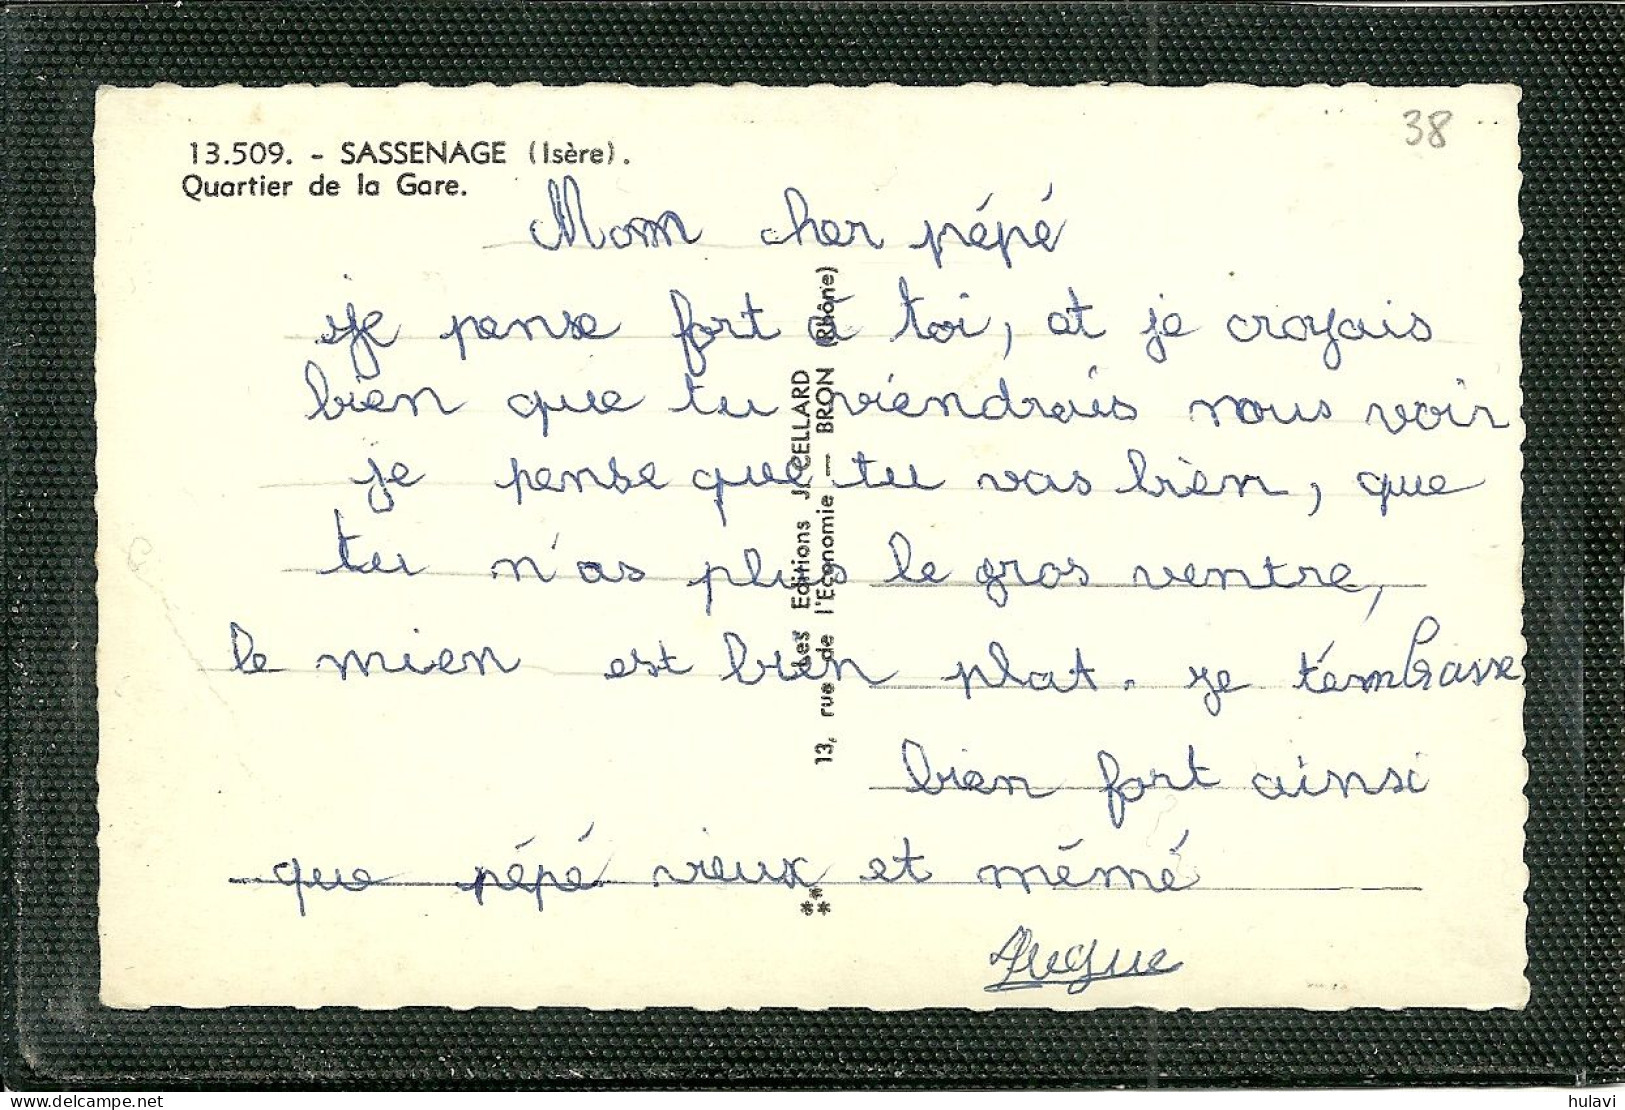 38
13.509. - SASSENAGE (Isère).
Quartier de la Gare.
Mon cher pépé
je pense fort à toi, et je croyais
bien que tu viendrais nous voir
je pense que tu vas bien, que
tu n'as plus le gros ventre,
le mien est bien plat. je t'embrasse
bien fort ainsi
que pépé vieux et mémé
Les Editions J. CELLARD
13, rue de l'Economie — BRON (Rhône)
delcampe.net
hulavi